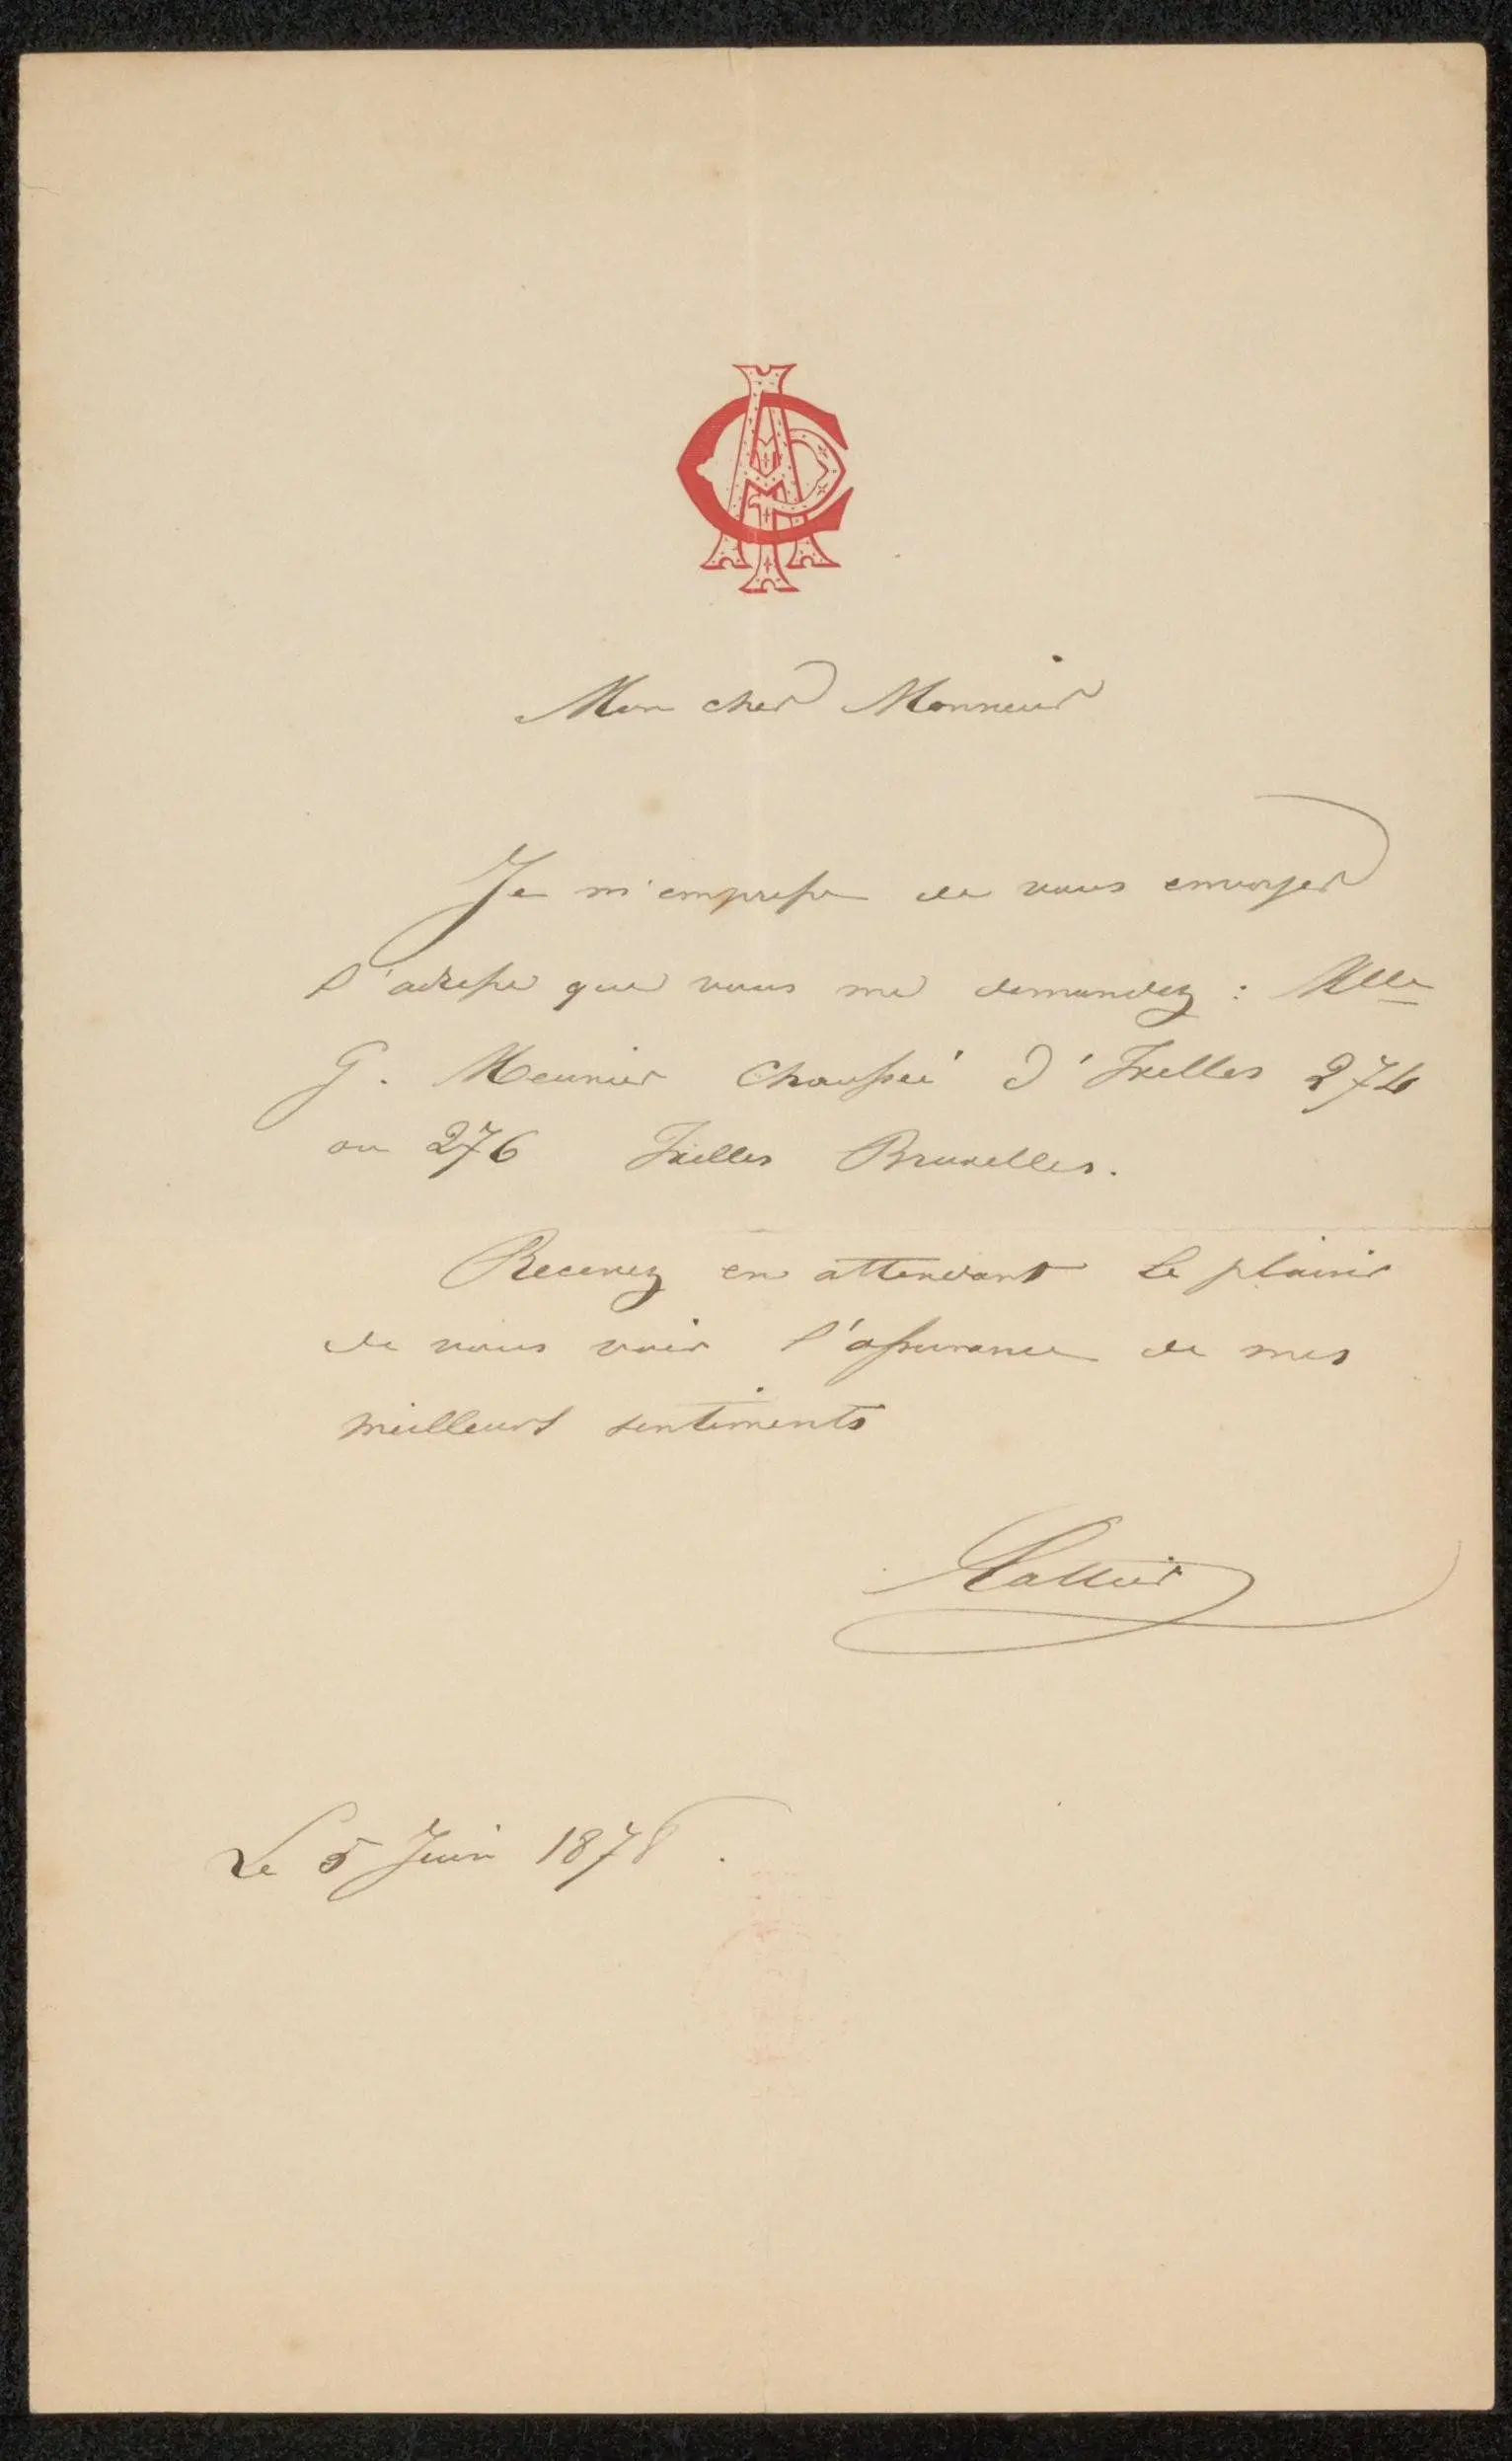 Mon cher Monsieur
Je m'empresse de vous envoyer
l'adresse que vous me demandez : Mlle
G. Meunier Chaussée d'Ixelles 274
ou 276 Ixelles Bruxelles.
Recevez en attendant le plaisir
de vous voir l'assurance de mes
meilleurs sentiments
Le 5 Juin 1878.